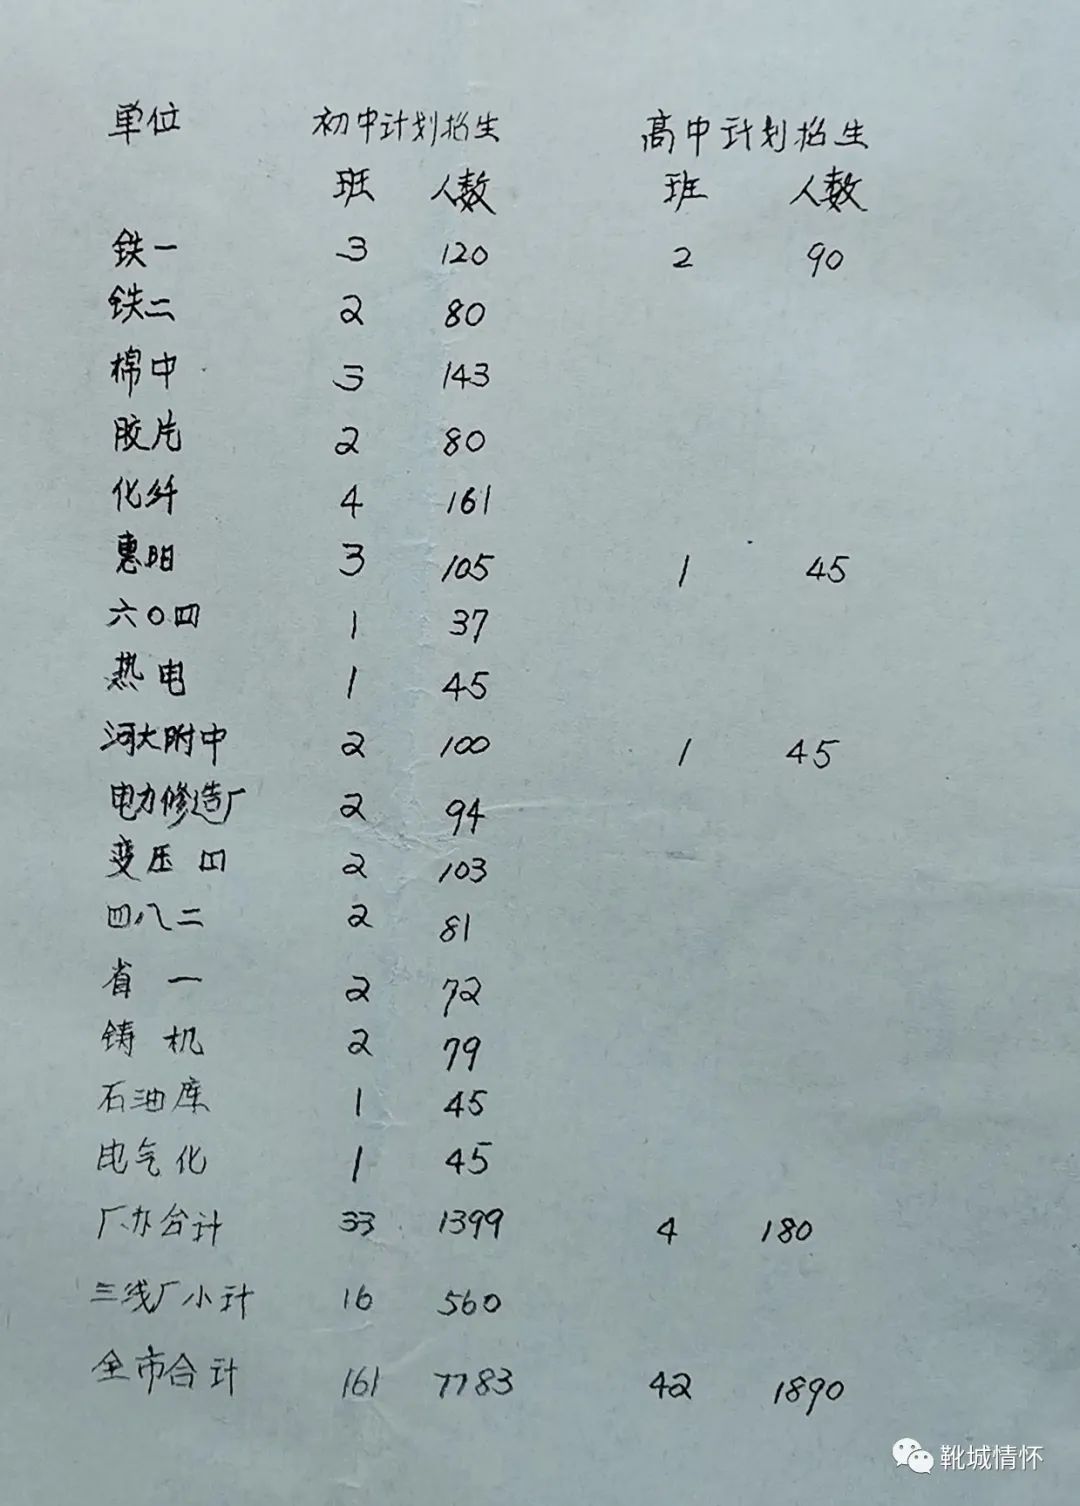 单位 初中计划招生 高中计划招生
班 人数 班 人数
铁一 3 120 2 90
铁二 2 80
棉中 3 143
胶片 2 80
化纤 4 161
惠阳 3 105 1 45
六〇四 1 37
热电 1 45
河大附中 2 100 1 45
电力修造厂 2 94
变压四 2 103
四八二 2 81
省一 2 72
铸机 2 79
石油库 1 45
电气化 1 45
厂办合计 33 1399 4 180
三线厂小计 16 560
全市合计 161 7783 42 1890
靴城情怀